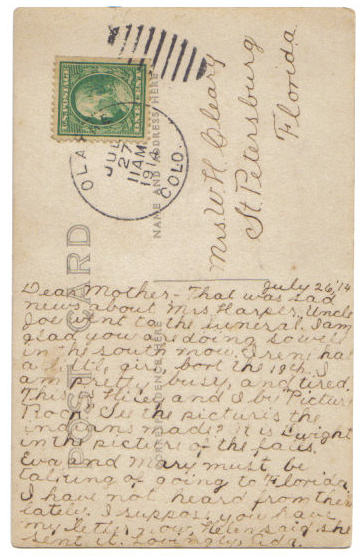 U.S. POSTAGE
ONE CENT
OLA
JUL
27
11 AM
1914
COLO.
POST CARD
NAME AND ADDRESS HERE
CORRESPONDENCE HERE
Mrs W. H. Cleary
St Petersburg
Florida
July 26/14
Dear Mother - That was sad
news about Mrs Harper. Uncle
Joe went to the funeral. I am
glad you are doing so well
in the south now. Irene has
a little girl born the 19th. I
am pretty busy, and tired.
This is and I by Picture
Rock. See the picturs the
indians made? It is Dwight
in the picture of the falls.
Eva and Mary must be
talking of going to Florida.
I have not heard from them
lately. I suppose you have
my letter now, Helen said she
sent it. Lovingly,